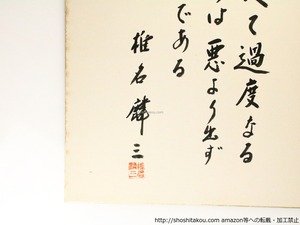 て過度なる
は悪より出ず
である
椎名麟三
https://shoshitakou.com amazon等への転載・加工禁止